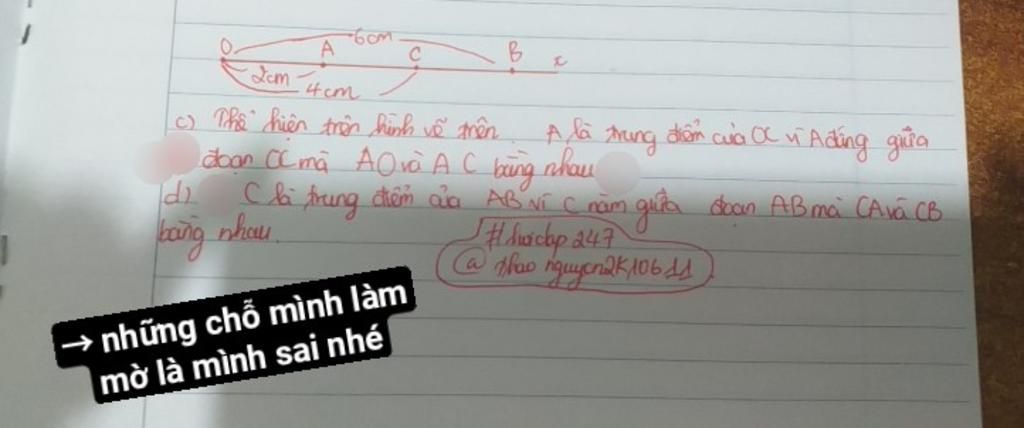 6cm
O A C B x
2cm
4cm
c) Thể hiện trên hình vẽ trên. A là trung điểm của OC vì A đứng giữa
đoạn OC mà AO và AC bằng nhau
d) C là trung điểm của AB vì C nằm giữa đoạn AB mà CA và CB
bằng nhau.
#hoidap247
@thaonguyen2k10611
→ những chỗ mình làm
mờ là mình sai nhé